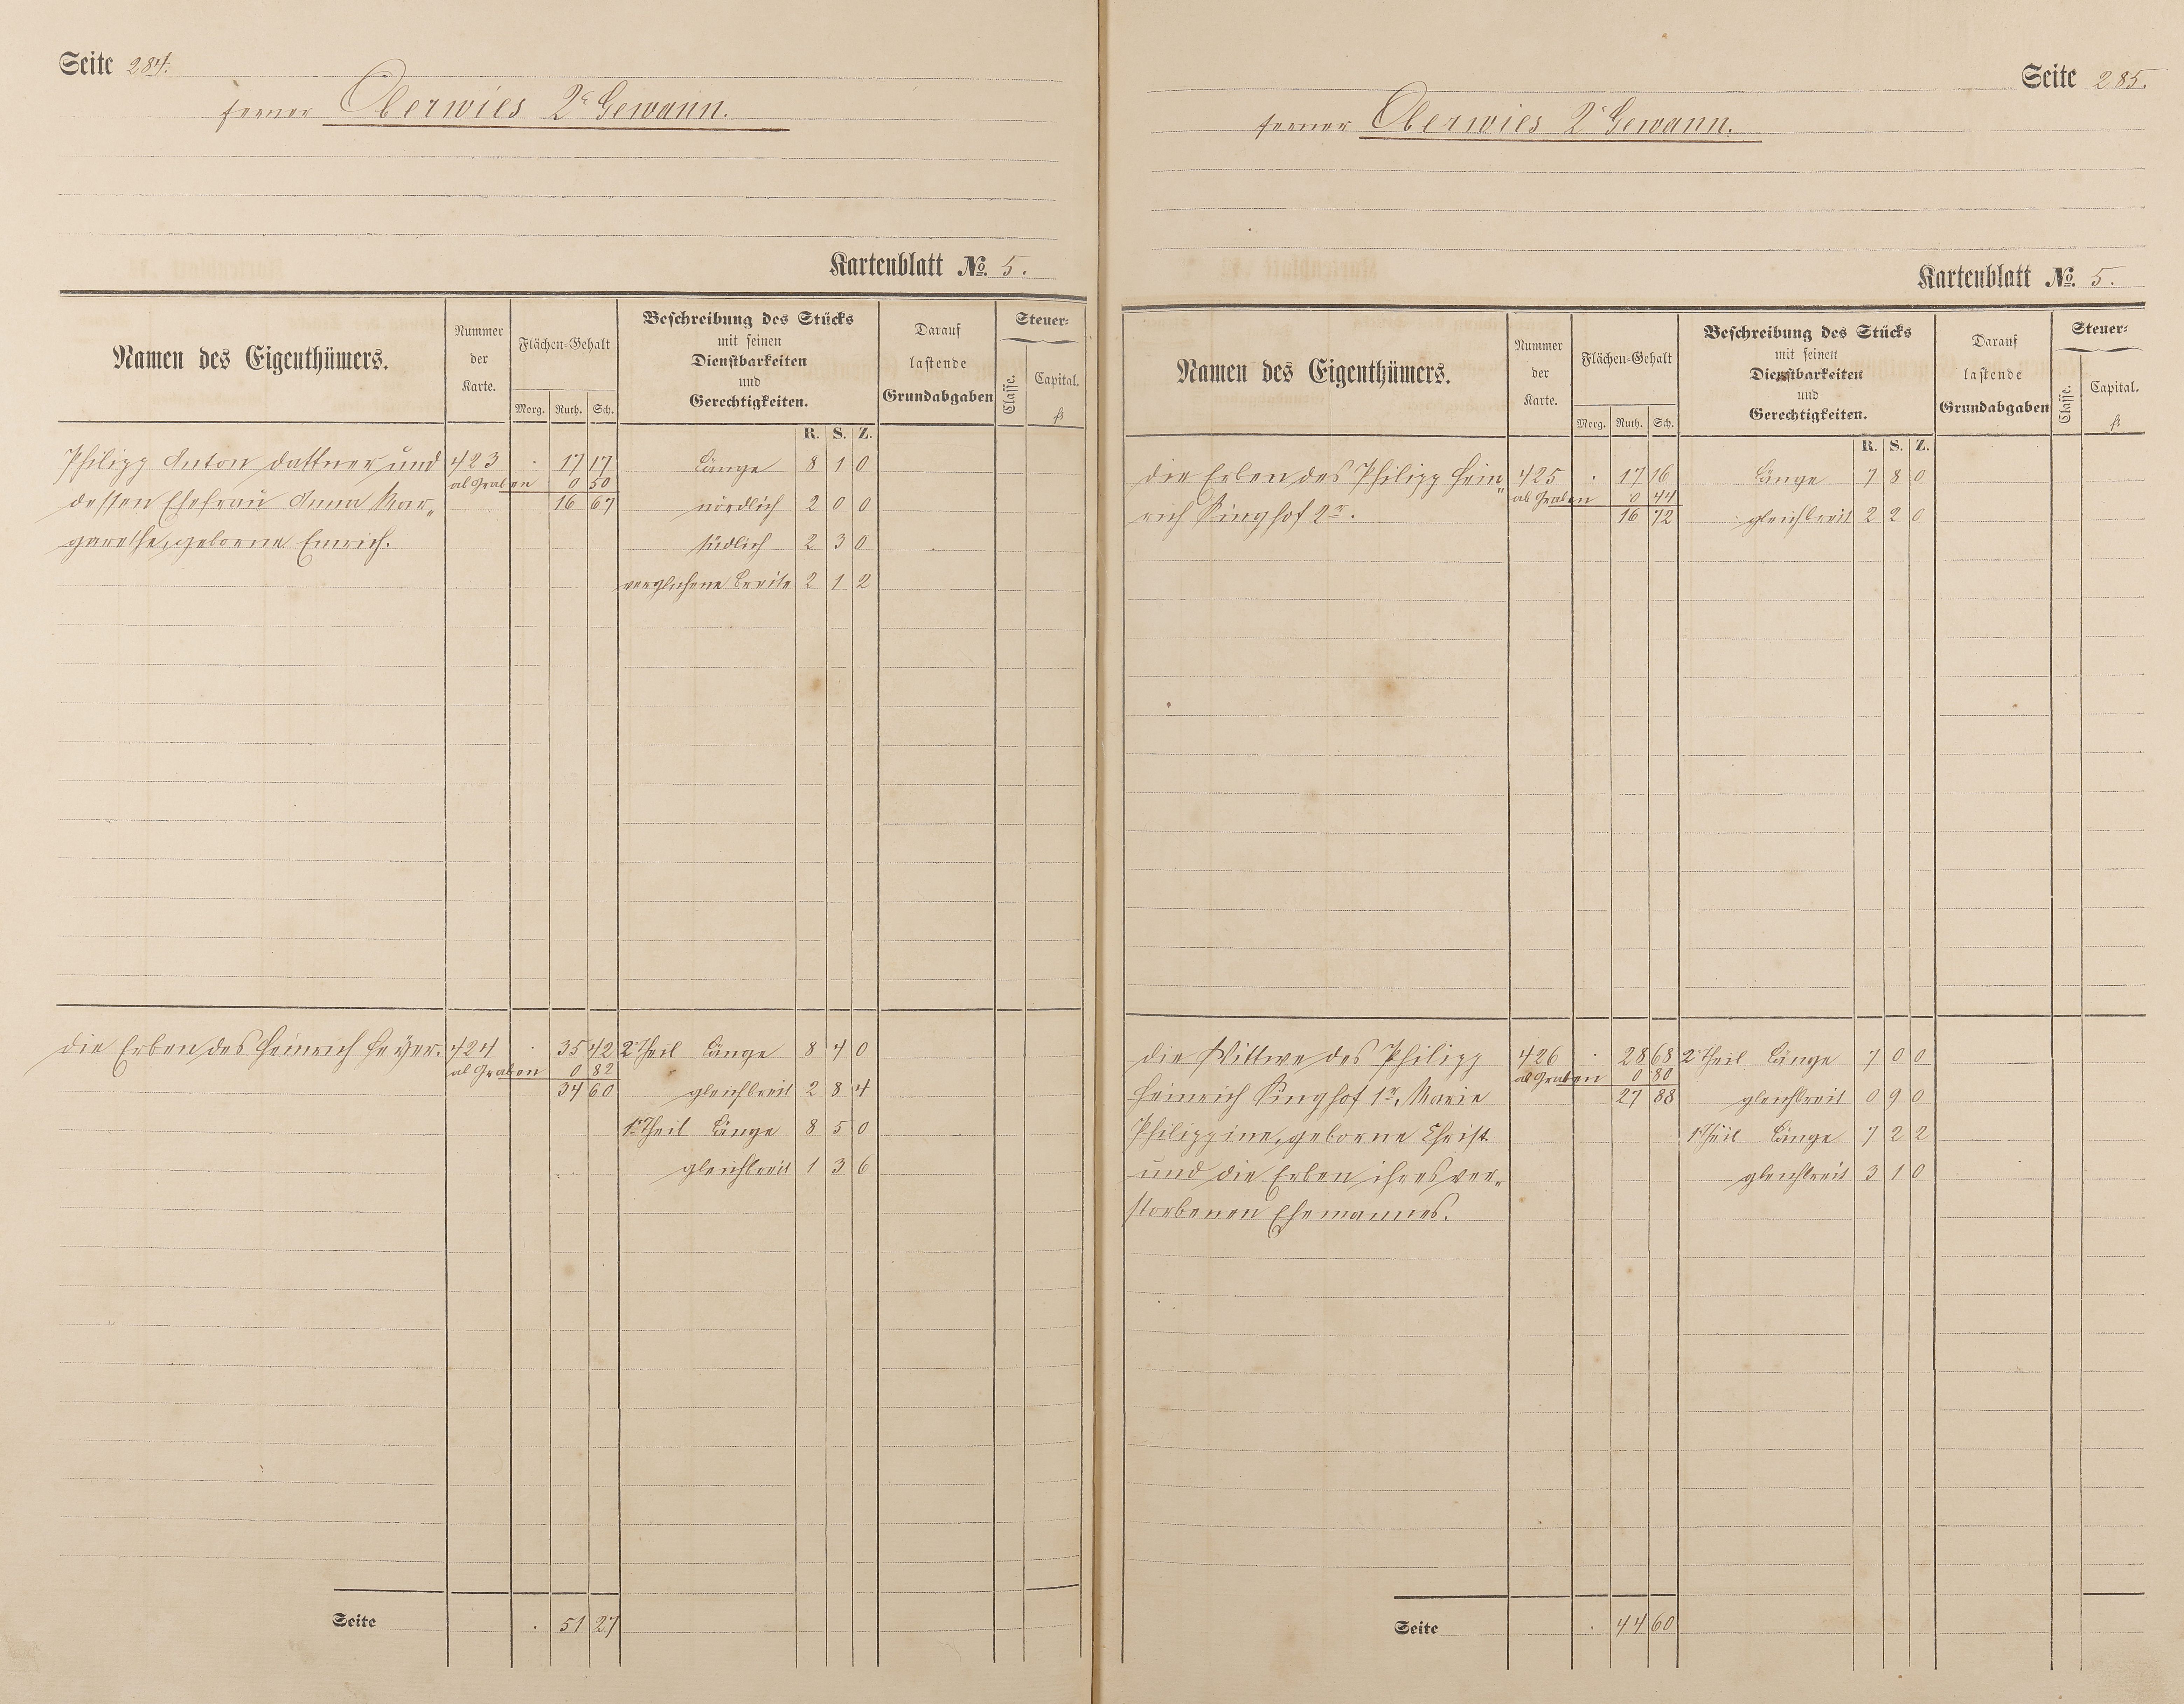 Seite 284.
ferner Oberwies 2e Gewann.
Kartenblatt No. 5.
Namen des Eigenthümers.
Nummer der Karte.
Flächen-Gehalt
Morg. Ruth. Sch.
Beschreibung des Stücks
mit seinen
Dienstbarkeiten
und
Gerechtigkeiten.
Darauf
lastende
Grundabgaben
Steuer-
Classe.
Capital.
fl
R. S. Z.
Philipp Anton Dattner und 423 . 17 17 Länge 8 1 0
ab Graben 0 50
dessen Ehefrau Anna Mar- 16 67 nördlich 2 0 0
garethe, geborne Emrich. südlich 2 3 0
verglichene Breite 2 1 2
Die Erben des Heinrich Heyer. 424 . 35 42 2r Theil Länge 8 4 0
ab Graben 0 82
34 60 gleichbreit 2 8 4
1r Theil Länge 8 5 0
gleichbreit 1 3 6
Seite . 51 27
Seite 285.
ferner Oberwies 2e Gewann.
Kartenblatt No. 5.
Namen des Eigenthümers.
Nummer der Karte.
Flächen-Gehalt
Morg. Ruth. Sch.
Beschreibung des Stücks
mit seinen
Dienstbarkeiten
und
Gerechtigkeiten.
Darauf
lastende
Grundabgaben
Steuer-
Classe.
Capital.
fl
R. S. Z.
Die Erben des Philipp Hein- 425 . 17 16 Länge 7 8 0
ab Graben 0 44
rich Kinghof 2r. 16 72 gleichbreit 2 2 0
Die Wittwe des Philipp 426 . 28 68 2r Theil Länge 7 0 0
ab Graben 0 80
Heinrich Kinghof 1r, Marie 27 88 gleichbreit 0 9 0
Philippine, geborne Christ 1r Theil Länge 7 2 2
und die Erben ihres ver- gleichbreit 3 1 0
storbenen Ehemannes.
Seite . 44 60